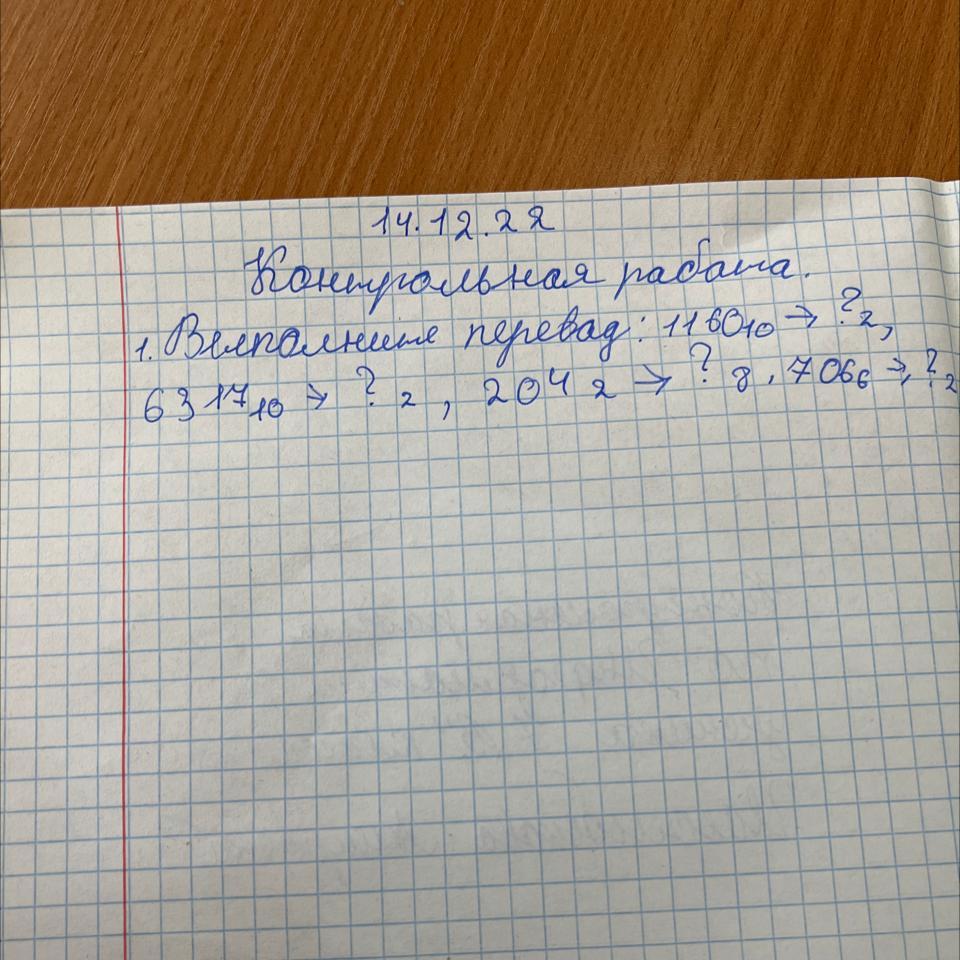 14.12.22
Контрольная работа.
1. Выполните перевод: 1160₁₀ → ?₂,
6317₁₀ → ?₂, 204₂ → ?₈, 706₆ → ?₂